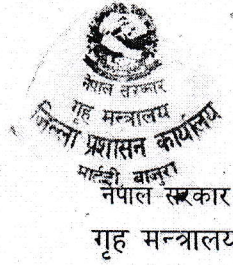 नेपाल सरकार
गृह मन्त्रालय
जिल्ला प्रशासन कार्यालय
मार्तडी, बाजुरा
नेपाल सरकार
गृह मन्त्रालय